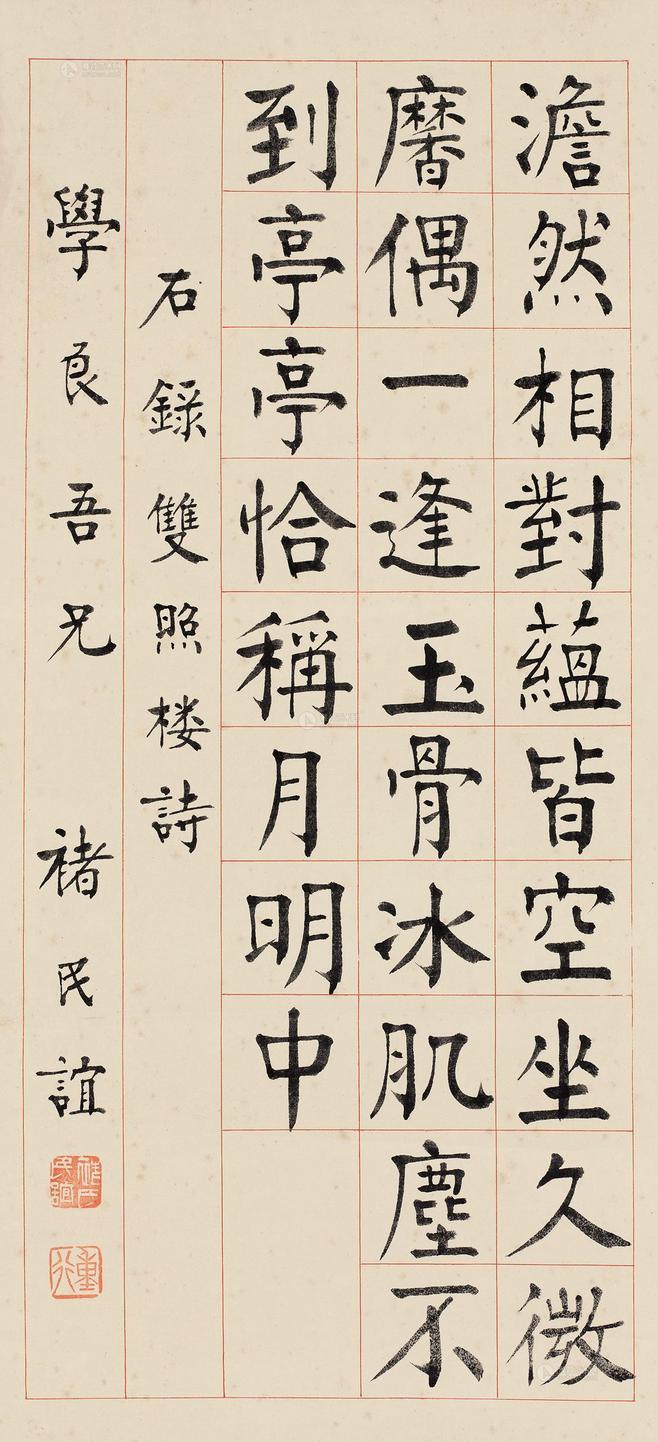 澹然相對蘊皆空坐久微
黁偶一逢玉骨冰肌塵不
到亭亭恰稱月明中
右錄雙照楼詩
學良吾兄 褚民誼
褚氏民誼
重行